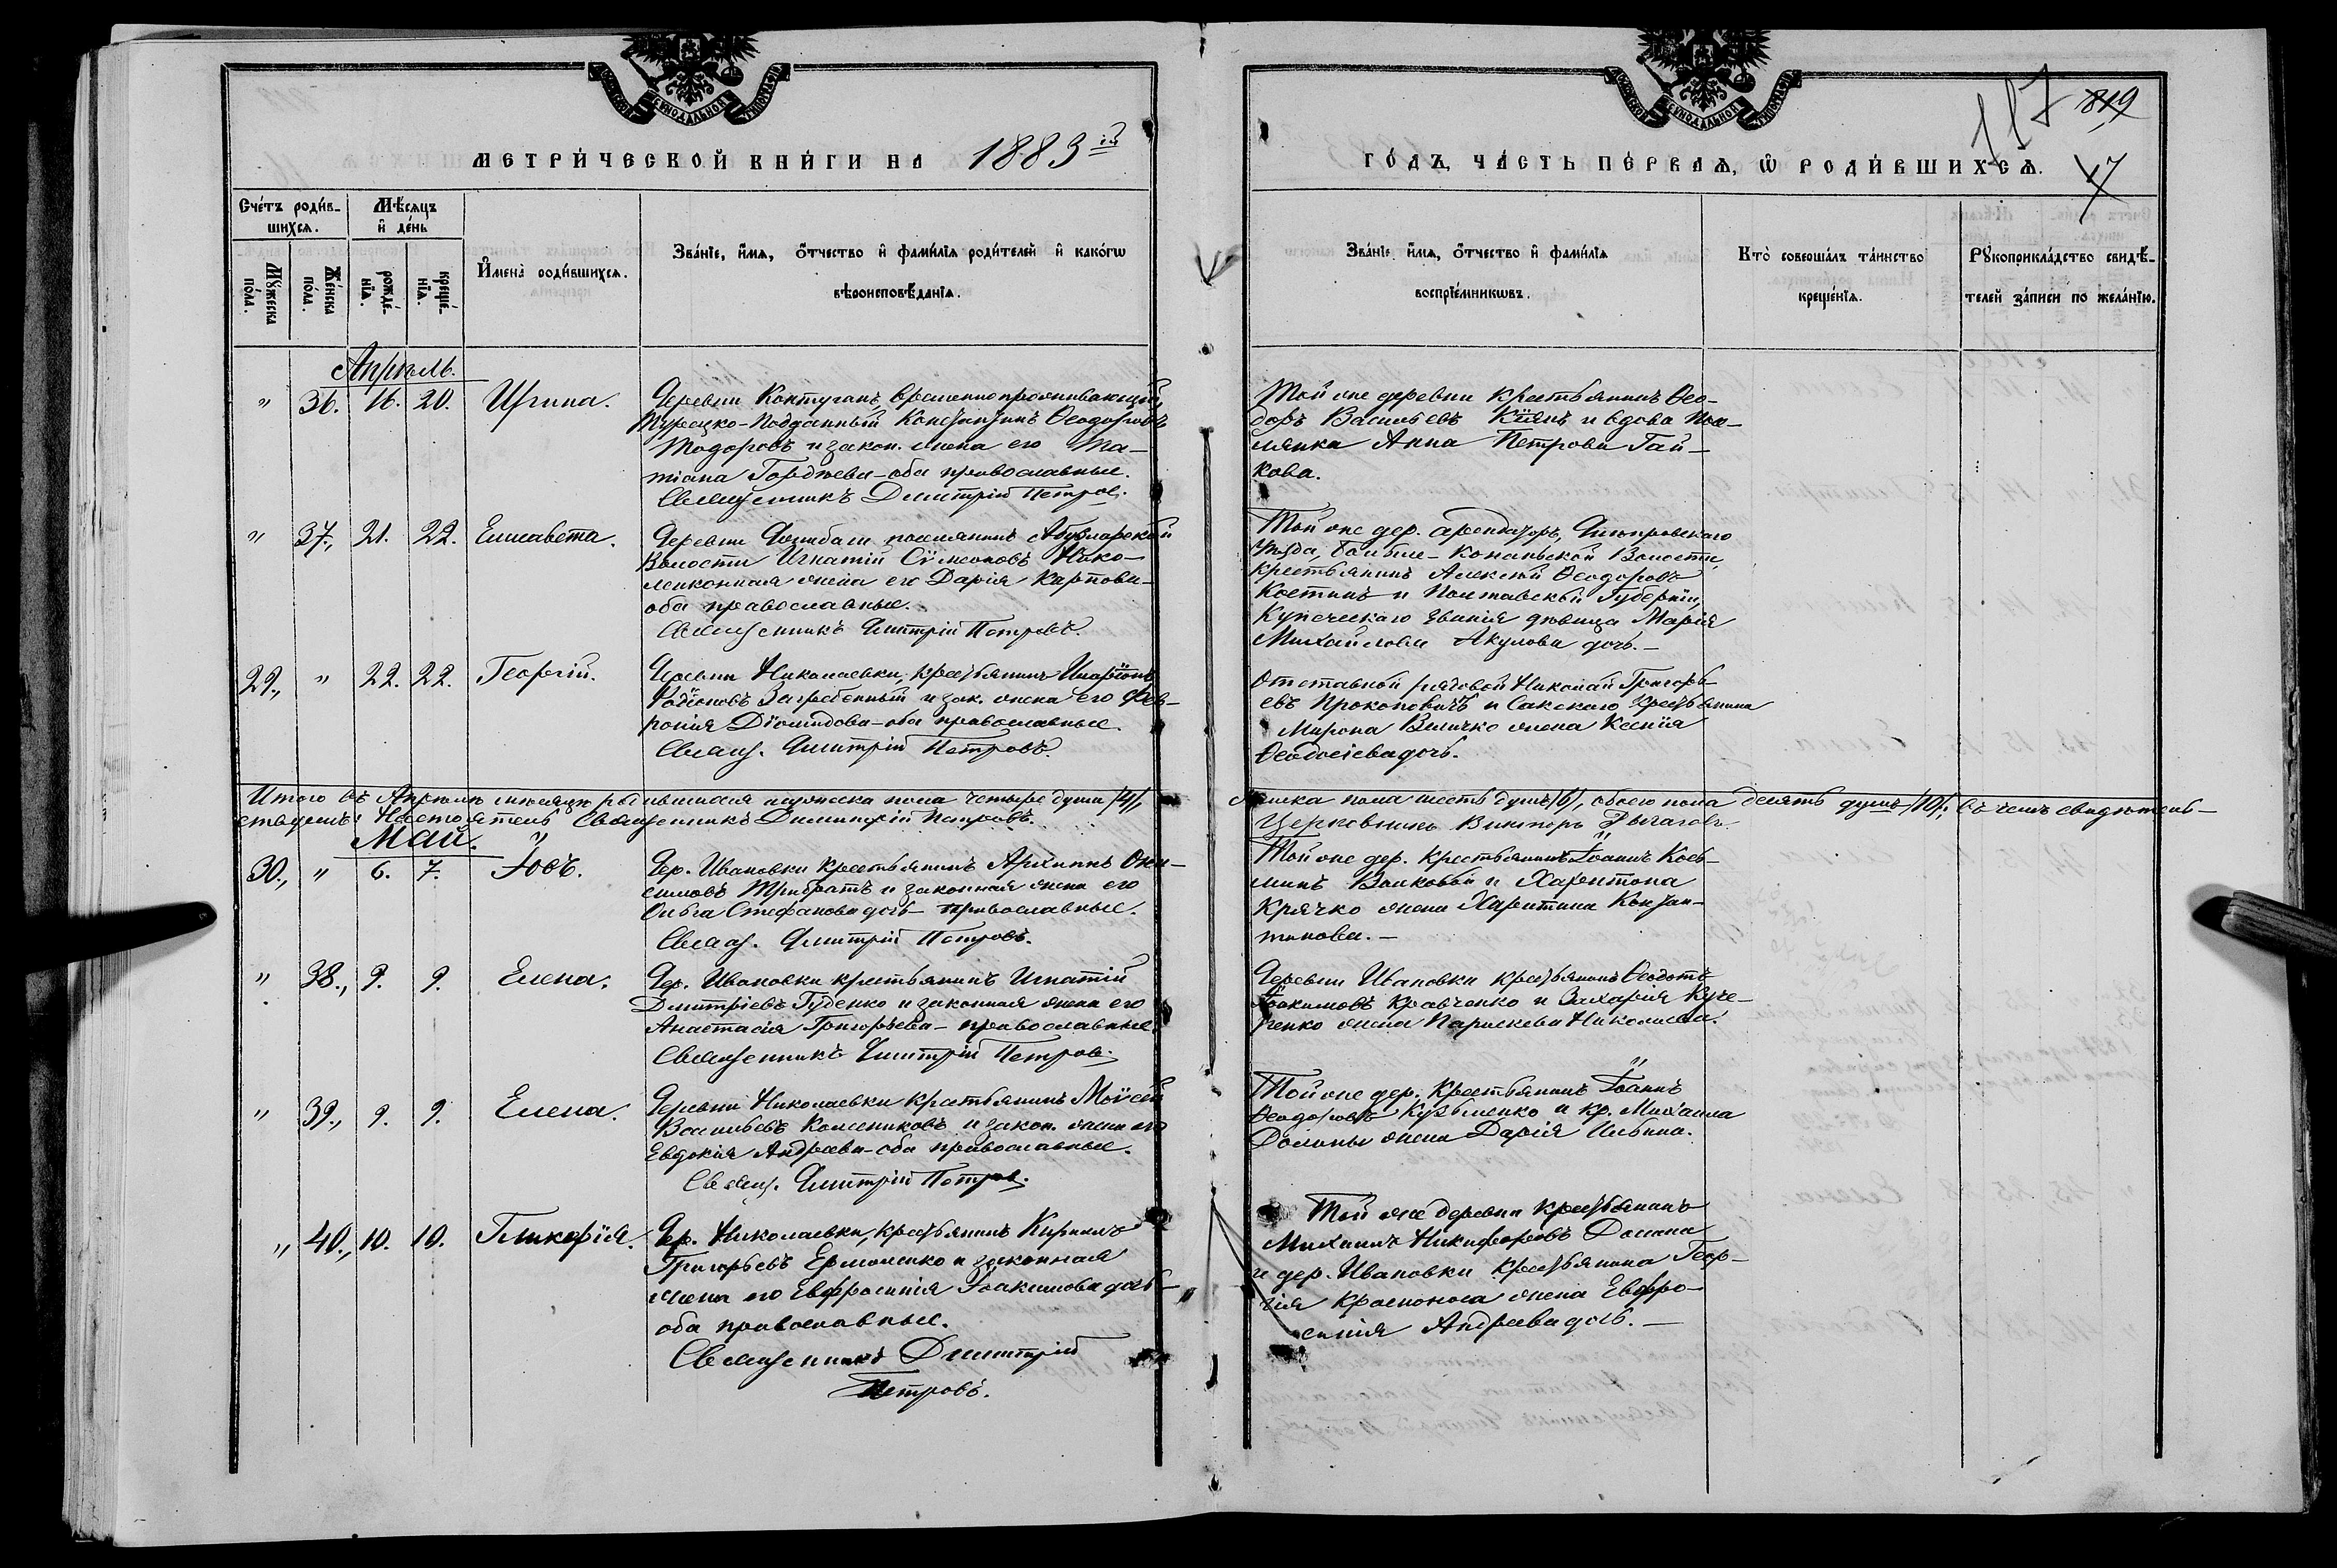 МОСКОВСКОЙ СѴНОДАЛЬНОЙ ТИПОГРАФІИ
МОСКОВСКОЙ СѴНОДАЛЬНОЙ ТИПОГРАФІИ
117 819
МЕТРИ́ЧЕСКОЙ КНИ́ГИ НА 1883ій
ГО́ДЪ, ЧА́СТЬ ПЕ́РВАѦ, Ѿ РОДИ́ВШИХСѦ.
47
Сче́тъ роди́в-
шихсѧ.
Мѣ́сѧцъ
и҆ де́нь
Мꙋ́жеска
по́ла.
Же́нска
по́ла.
рожде́-
нїѧ.
креще́-
нїѧ.
И҆мена̀ роди́вшихсѧ.
Зва́нїе, и҆́мѧ, ѻ҆́тчество и҆ фами́лїѧ роди́телей и҆ како́гѡ
вѣроисповѣ́данїѧ.
Зва́нїе, и҆́мѧ, ѻ҆́тчество и҆ фами́лїѧ
воспрїе́мникѡвъ.
Кто̀ соверша́лъ та́инство
креще́нїѧ.
Рꙋкоприкла́дство свидѣ́-
телей за́писи по жела́нїю.
Апрѣль.
" 36. 16. 20. Ирина.
Деревни Контуганъ, временнопроживающій,
Турецко-Подданный Константинъ Ѳеодоровъ
Тодоровъ и закон. жена его Та-
тіана Горджева – оба православные.
Священникъ Димитрій Петров.
Той же деревни крестьянинъ Ѳео-
доръ Васильевъ Кіянъ и вдова Посе-
лянка Анна Петрова Гай-
кова.
" 37., 21. 22. Елисавета.
Деревни поселянинъ Абузларской
Волости Игнатій Сѵмеоновъ
законная жена его Дарія Карпова –
оба православные.
Священникъ Димитрій Петровъ.
Той же дер. арендаторъ, Днѣпровскаго
Уѣзда, Больше-Копаньской Волости,
крестьянинъ Алексѣй Ѳеодоровъ
Костинъ и Полтавской Губерніи,
Купеческаго званія дѣвица Марія
Михайлова Акулова дочь. –
29., " 22. 22. Георгій.
Деревни Николаевки, крестьянинъ Иларіонъ
Родіоновъ Загребенный и зак. жена его Фев-
ронія Діомидова – оба православные.
Свящ. Димитрій Петровъ.
Отставной рядовой Николай Григорь-
евъ Прокоповичъ и Сакскаго Крестьянина
Мирона Величко жена Ксенія
Ѳеодосіева дочь.
Итого въ Апрѣлѣ мѣсяцѣ родившихся мужеска пола четыре души /4/,
женска пола шесть душъ /6/, обоего пола десять душъ /10/, въ чемъ свидѣтель-
ствуемъ: Настоятель Священникъ Димитрій Петровъ.
Церковникъ Викторъ Рычаговъ.
Май.
30., " 6. 7. Іовъ.
Дер. Ивановки крестьянинъ Архиппъ Они-
симовъ Трибратъ и законная жена его
Ольга Стефанова дочь – православные.
Свящ. Димитрій Петровъ.
Той же дер. крестьянинъ Іоаннъ Косм-
минъ Волковой и Харитона
Крячко жена Харитина Констан-
тинова. –
" 38., 9. 9. Елена.
Дер. Ивановки крестьянинъ Игнатій
Дмитріевъ Губенко и законная жена его
Анастасія Григорьева – православные.
Священникъ Димитрій Петров.
Деревни Ивановки крестьянинъ Ѳеодотъ
Іоакимовъ Кравченко и Захарія Куче-
ренко жена Параскева Николаева.
" 39., 9. 9. Елена.
Деревни Николаевки крестьянинъ Моѵсей
Васильевъ Колесниковъ и закон. жена его
Евдокія Андреева – оба православные.
Свящ. Димитрій Петров.
Той же дер. Крестьянинъ Іоаннъ
Ѳеодоровъ Кузьменко и кр. Михаила
Долины жена Дарія Ильина.
" 40., 10. 10. Гликерія.
Дер. Николаевки, крестьянинъ Кириллъ
Григорьевъ Ермоленко и законная
жена его Евфросинія Іоакимова дочь –
оба православные.
Священникъ Димитрій
Петровъ.
Той же деревни крестьянинъ
Михаилъ Никифоровъ Долина
и дер. Ивановки крестьянина Геор-
гія Красноноса жена Евфро-
синія Андреева дочь. –